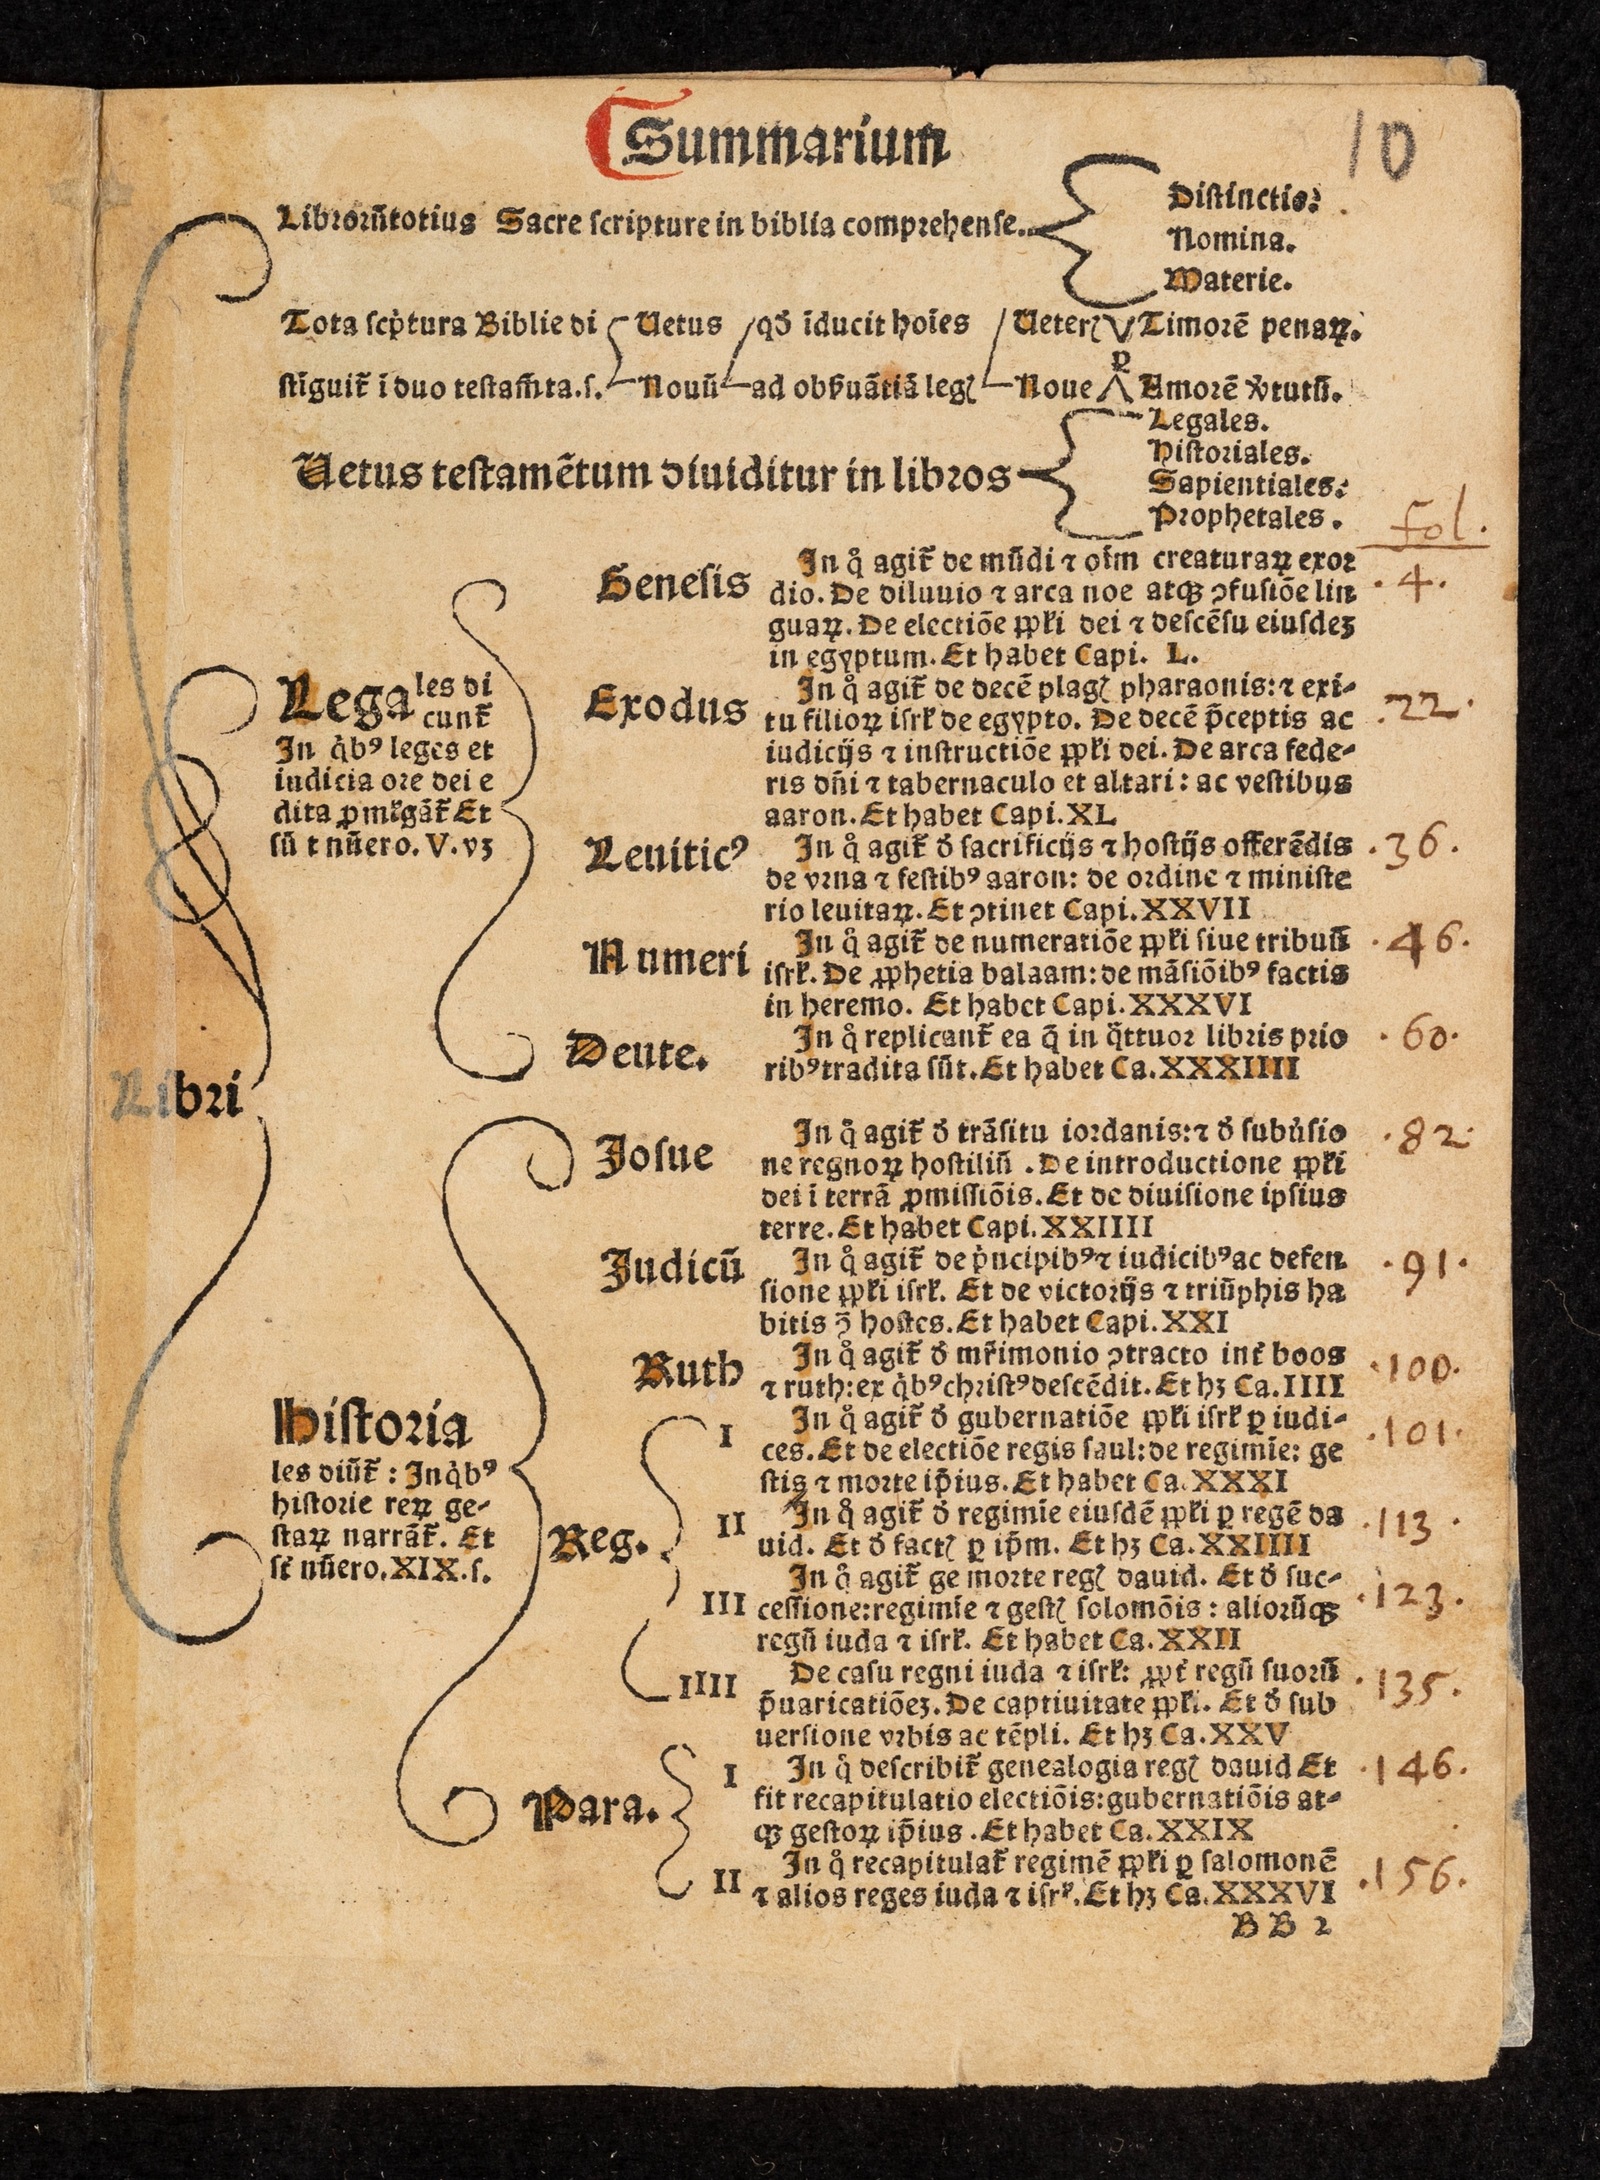 Summarium
10
Librorũ totius Sacre ſcripture in biblia comprehenſe.
Diſtinctio.
Nomina.
Materie.
Tota ſcṗtura Biblie di Uetus qď īducit hoīes Ueterꝭ Timorē penaꝝ.
ꝑ
ſtīguit̃ ī duo teſtam̃ta.ſ. Nouũ ad obẜuãtiã legꝭ Noue Amorē v̓tutũ.
Uetus teſtamētum diuiditur in libros
Legales.
Hiſtoriales.
Sapientiales.
Prophetales.
fol.
Libri
Legales di
cunt̃
In q̇bꝰ leges et
iudicia ore dei e
dita ꝓmĺgãt̃ Et
ſũt nũero. V. vꝫ
Geneſis
In q̊ agit̃ de mũdi ⁊ oīm creaturaꝝ exor
dio. De diluuio ⁊ arca noe atqꝫ ꝯfuſiōe lin
guaꝝ. De electiōe ꝓpĺi dei ⁊ deſcēſu eiuſdeꝫ
in egyptum. Et habet Capi. L.
.4.
Exodus
In q̊ agit̃ de decē plagꝭ pharaonis: ⁊ exi-
tu filioꝝ iſrĺ de egypto. De decē p̄ceptis ac
iudicijs ⁊ inſtructiōe ꝓpĺi dei. De arca fede-
ris dñi ⁊ tabernaculo et altari: ac veſtibus
aaron. Et habet Capi. XL
.22.
Leuiticꝰ
In q̊ agit̃ ď ſacrificijs ⁊ hoſtijs offerēdis
de vrna ⁊ feſtibꝰ aaron: de ordine ⁊ miniſte
rio leuitaꝝ. Et ꝯtinet Capi. XXVII
.36.
Numeri
In q̊ agit̃ de numeratiōe ꝓpĺi ſiue tribuũ
iſrĺ. De ꝓphetia balaam: de mãſiōibꝰ factis
in heremo. Et habet Capi. XXXVI
.46.
Deute.
In q̊ replicant̃ ea q̄ in q̄ttuor libris prio
ribꝰ tradita ſũt. Et habet Ca. XXXIIII
.60.
Hiſtoria
les diũt̃: In q̇bꝰ
hiſtorie reꝝ ge-
ſtaꝝ narrãt̃. Et
ſt̃ nũero. XIX. ſ.
Joſue
In q̊ agit̃ ď trãſitu iordanis: ⁊ ď ſubu̓ſio
ne regnoꝝ hoſtiliũ. De introductione ꝓpĺi
dei ī terrã ꝓmiſſiōis. Et de diuiſione ipſius
terre. Et habet Capi. XXIIII
.82.
Judicũ
In q̊ agit̃ de ṗncipibꝰ ⁊ iudicibꝰ ac defen
ſione ꝓpĺi iſrĺ. Et de victorijs ⁊ triũphis ha
bitis ꝯ̄ hoſtes. Et habet Capi. XXI
.91.
Ruth
In q̊ agit̃ ď mr̃imonio ꝯtracto int̃ boos
⁊ ruth: ex q̇bꝰ chriſtꝰ deſcēdit. Et hꝫ Ca. IIII
.100.
Reg.
I
In q̊ agit̃ ď gubernatiōe ꝓpĺi iſrĺ ꝑ iudi-
ces. Et de electiōe regis ſaul: de regimīe: ge
ſtis ⁊ morte ip̄ius. Et habet Ca. XXXI
.101.
II
In q̊ agit̃ ď regimīe eiuſdē ꝓpĺi ꝑ regē da
uid. Et ď factꝭ ꝑ ip̄m. Et hꝫ Ca. XXIIII
.113.
III
In q̊ agit̃ ge morte regꝭ dauid. Et ď ſuc-
ceſſione: regimīe ⁊ geſtꝭ ſolomōis: aliorũqꝫ
regũ iuda ⁊ iſrĺ. Et habet Ca. XXII
.123.
IIII
De caſu regni iuda ⁊ iſrĺ: ꝓpt̃ regũ ſuorũ
p̄uaricatiōeꝫ. De captiuitate ꝓpĺi. Et ď ſub
uerſione vrbis ac tēpli. Et hꝫ Ca. XXV
.135.
Para.
I
In q̊ deſcribit̃ genealogia regꝭ dauid Et
fit recapitulatio electiōis: gubernatiōis at-
qꝫ geſtoꝝ ip̄ius. Et habet Ca. XXIX
.146.
II
In q̊ recapitulat̃ regimē ꝓpĺi ꝑ ſalomonē
⁊ alios reges iuda ⁊ iſrĺ. Et hꝫ Ca. XXXVI
.156.
BB 2